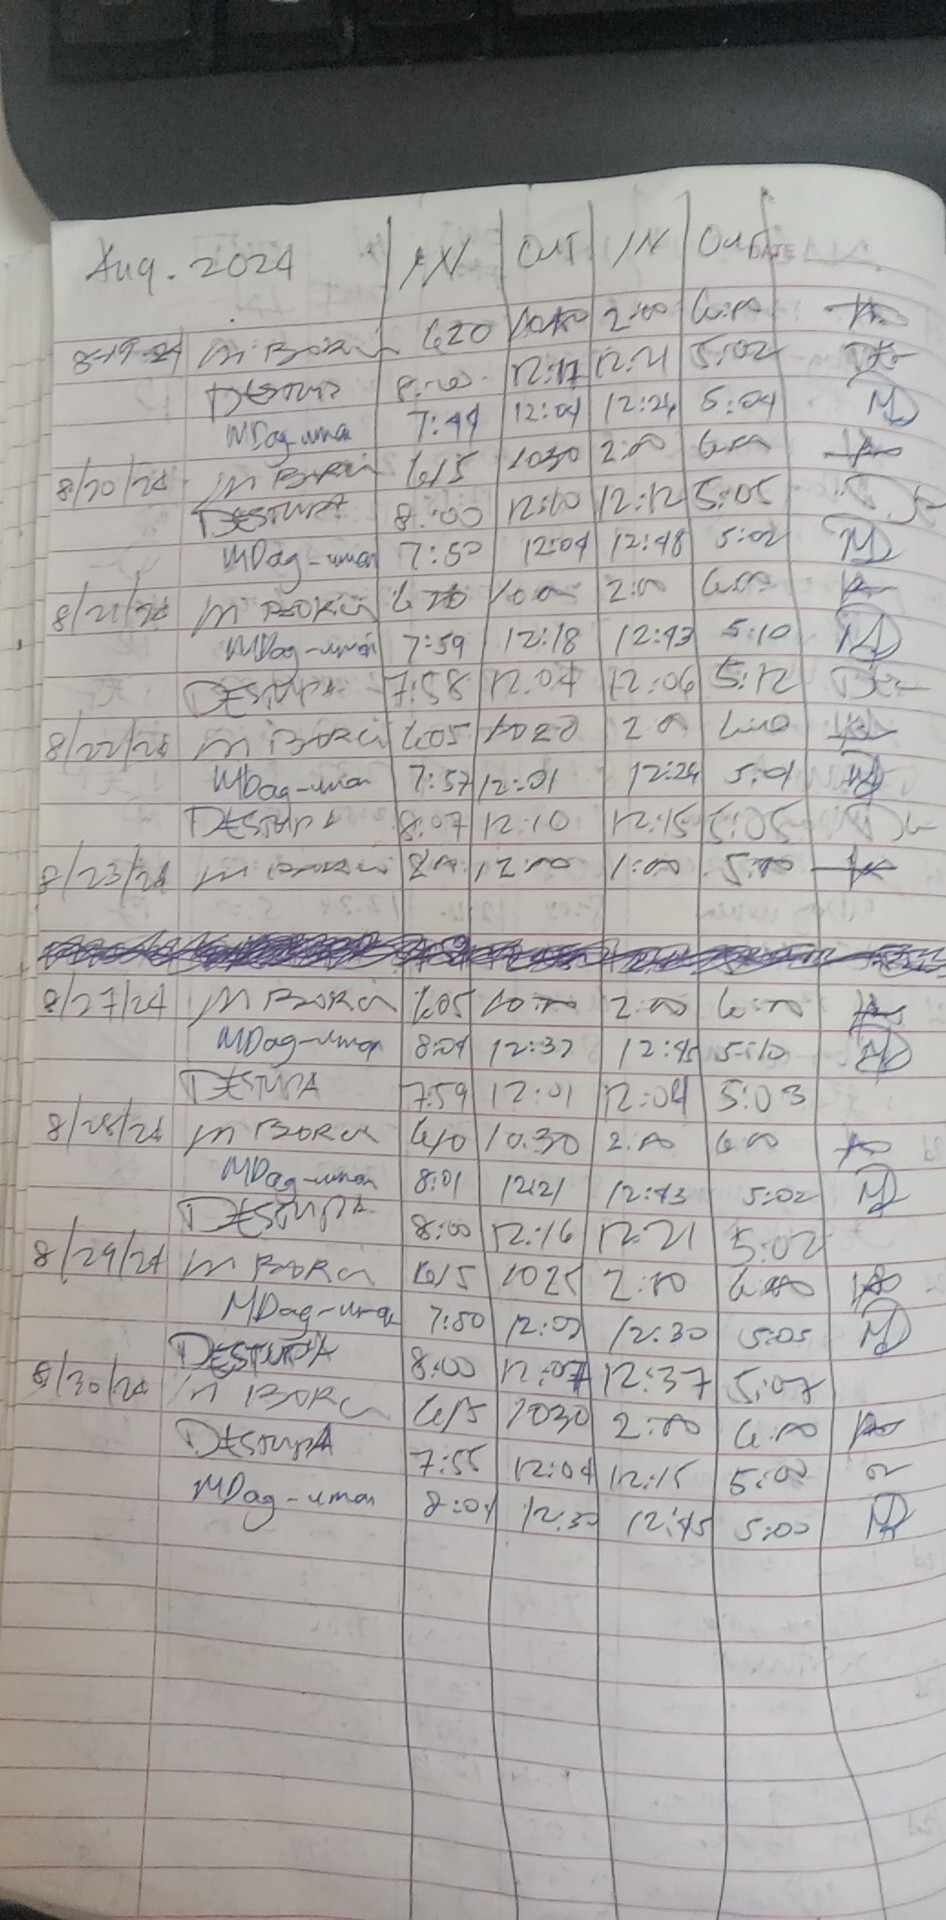 Aug. 2024 IN OUT IN OUT
DATE
8-19-24 M BORCI 620 2:00 6:00
DESTURA 8:00 12:17 12:21 5:02
MDag-uman 7:49 12:04 12:24 5:04 MD
8/20/24 M BORCI 615 1030 2:00 6:00
DESTURA 8:00 12:10 12:12 5:05
MDag-uman 7:50 12:04 12:48 5:02 MD
8/21/24 M BORCI 2:00 6:00
MDag-uman 7:59 12:18 12:43 5:10 MD
DESTURA 7:58 12.04 12:06 5:12
8/22/24 M BORCI 605 1020 2 00
MDag-uman 7:57 12:01 12:24 5:01 MD
DESTURA 8:07 12:10 12:15 5:05
8/23/24 M BORCI 12:00 1:00 5:00
8/27/24 M BORCI 605 2:00 6:00
MDag-uman 8:04 12:37 12:45 5:10 MD
DESTURA 7:59 12:01 12:04 5:03
8/28/24 M BORCI 610 10.30 2:00 6 00
MDag-uman 8:01 1221 12:43 5:02 MD
DESTURA 8:00 12:16 12:21 5:02
8/29/24 M BORCI 615 1025 2:00 6:00
MDag-uman 7:50 12:00 12:30 5:05 MD
DESTURA 8:00 12:07 12:37 5:07
8/30/24 M BORCI 615 1030 2:00 6:00
DESTURA 7:55 12:04 12:15
MDag-uman 8:01 12:30 12:45 5:00 MD